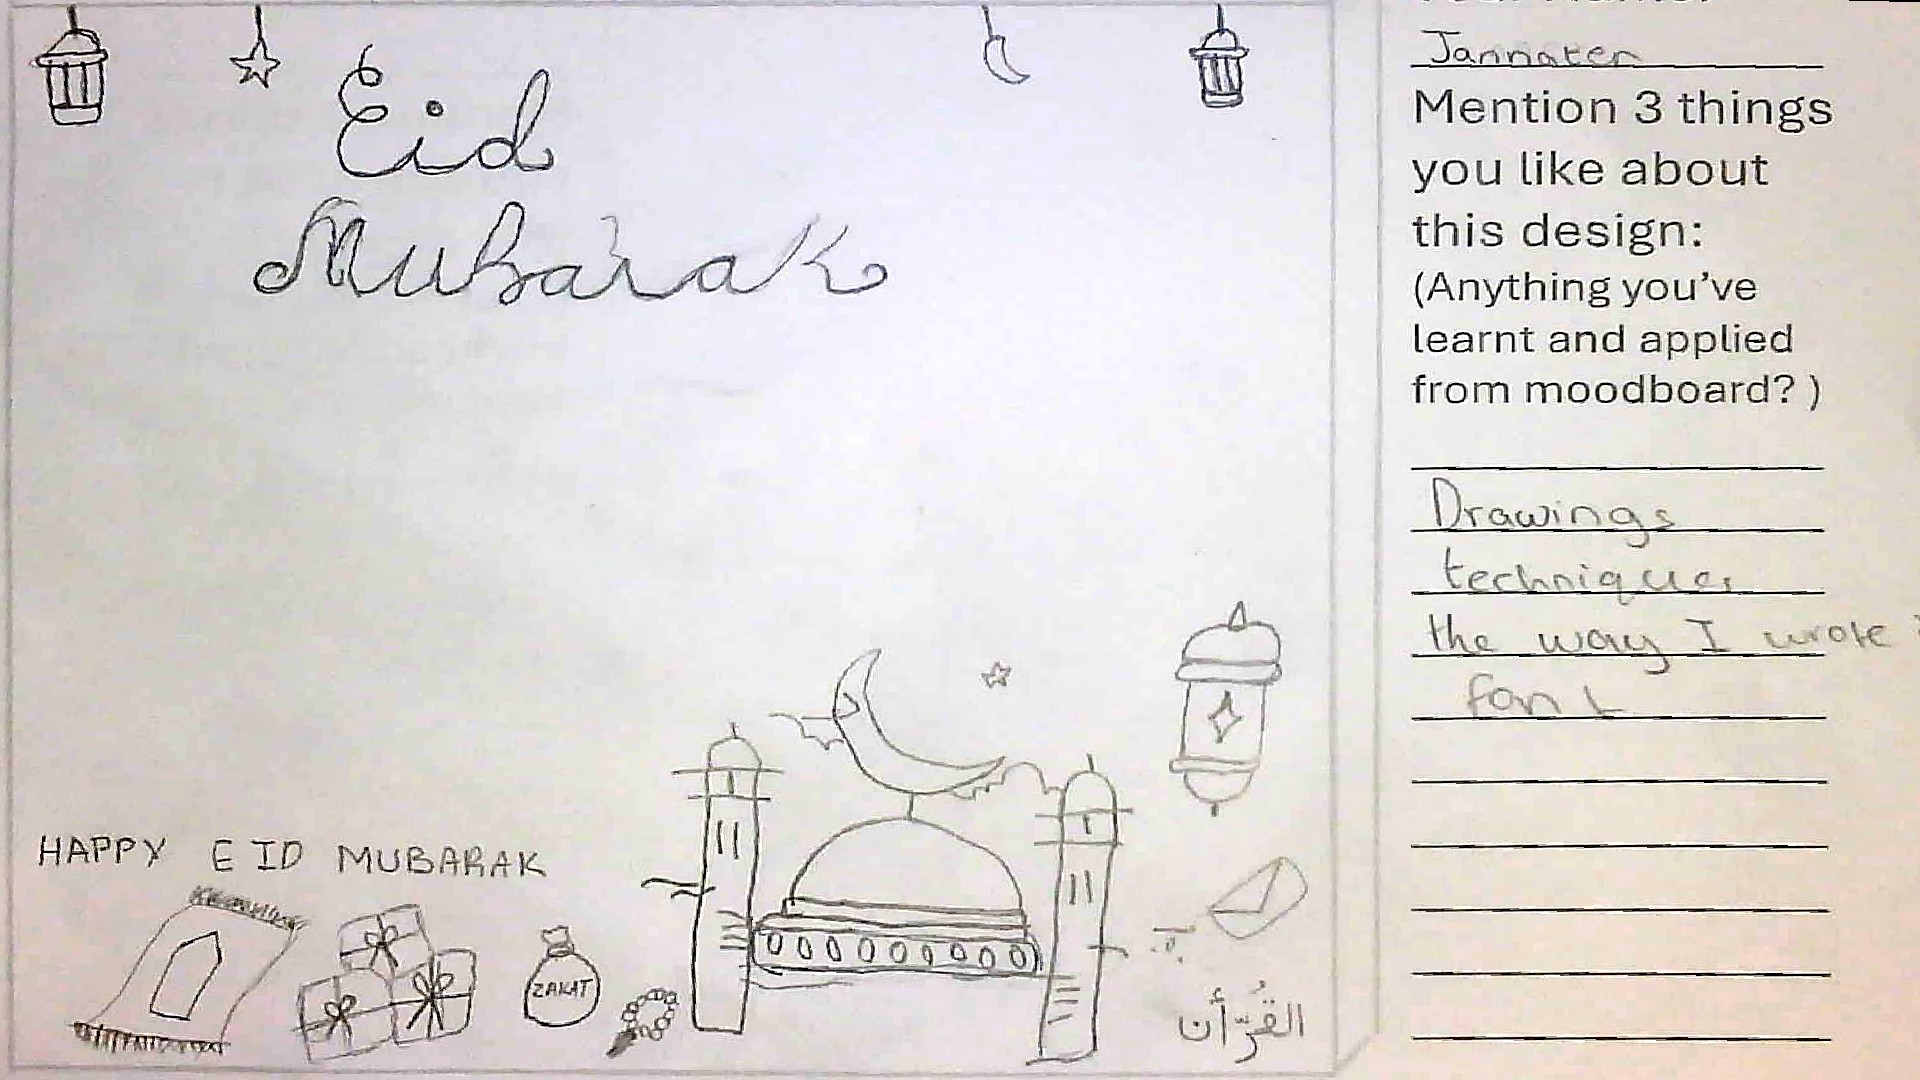 Eid
Mubarak
HAPPY EID MUBARAK
ZAKAT
القُرّأن
Mention 3 things
you like about
this design:
(Anything you've
learnt and applied
from moodboard? )
Drawings
techniques
the way I wrote
font